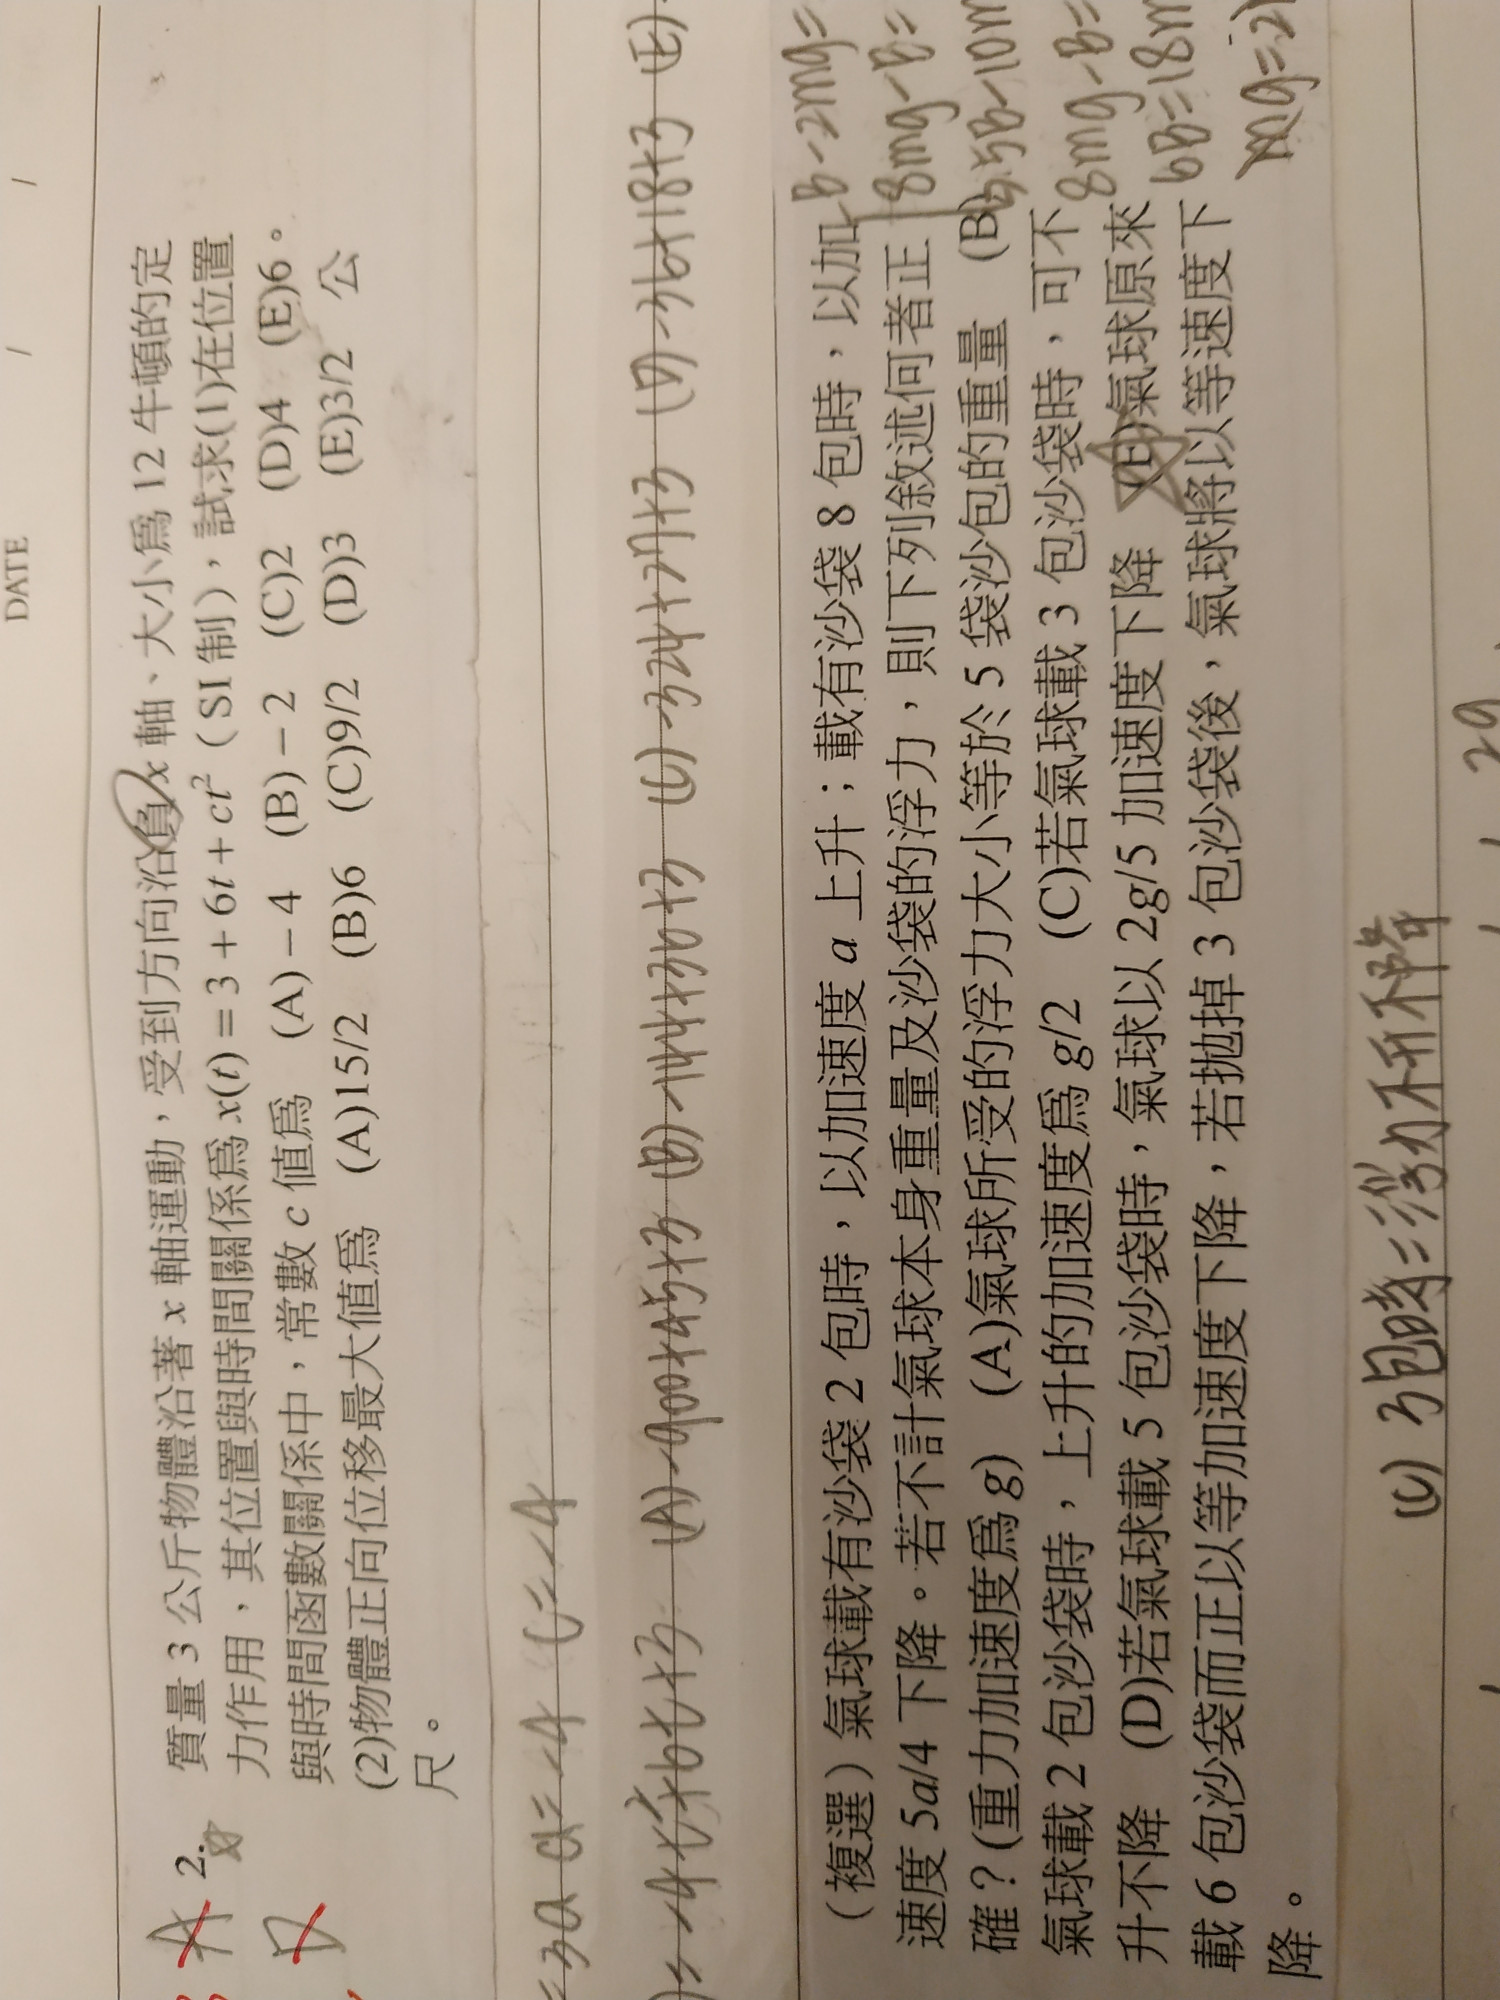 DATE / /
2. 質量 3 公斤物體沿著 x 軸運動，受到方向沿負 x 軸、大小爲 12 牛頓的定
力作用，其位置與時間關係爲 x(t) = 3 + 6t + ct²（SI 制），試求(1)在位置
與時間函數關係中，常數 c 值爲 (A)－4 (B)－2 (C)2 (D)4 (E)6。
(2)物體正向位移最大值爲 (A)15/2 (B)6 (C)9/2 (D)3 (E)3/2 公
尺。
A
D
=3a a=-4 c=-4
(A)-900+45+3 (B)-144+36+3 (C) (D)-36+18+3 (E)
（複選）氣球載有沙袋 2 包時，以加速度 a 上升；載有沙袋 8 包時，以加
速度 5a/4 下降。若不計氣球本身重量及沙袋的浮力，則下列敘述何者正
確？(重力加速度爲 g) (A)氣球所受的浮力大小等於 5 袋沙包的重量 (B)
氣球載 2 包沙袋時，上升的加速度爲 g/2 (C)若氣球載 3 包沙袋時，可不
升不降 (D)若氣球載 5 包沙袋時，氣球以 2g/5 加速度下降 (E)氣球原來
載 6 包沙袋而正以等加速度下降，若拋掉 3 包沙袋後，氣球將以等速度下
降。
B-2mg=
8mg-B=
5B-10m
8mg-B=
6B=18m
(C) 3包時=浮力不升不降